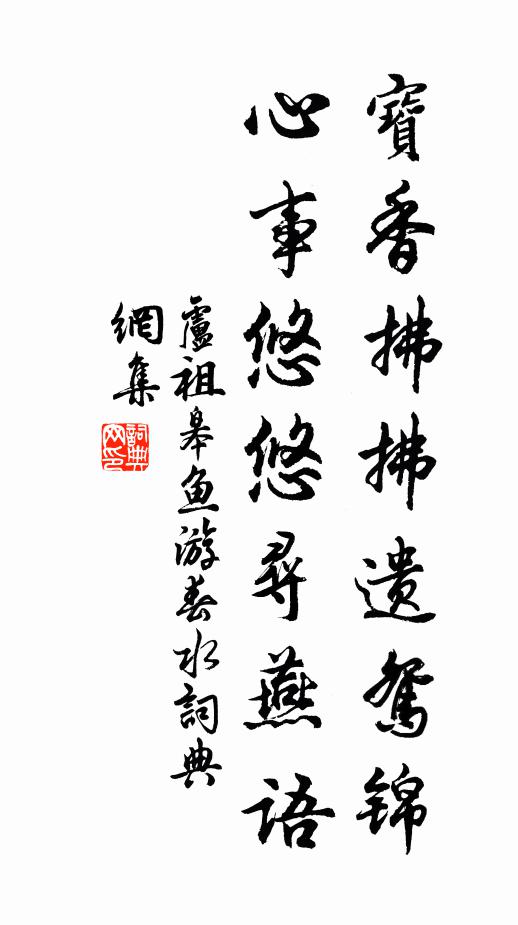 寶香拂拂遺鴛錦
心事悠悠尋燕語
盧祖皋魚游春水詞典
網集
詞典网印